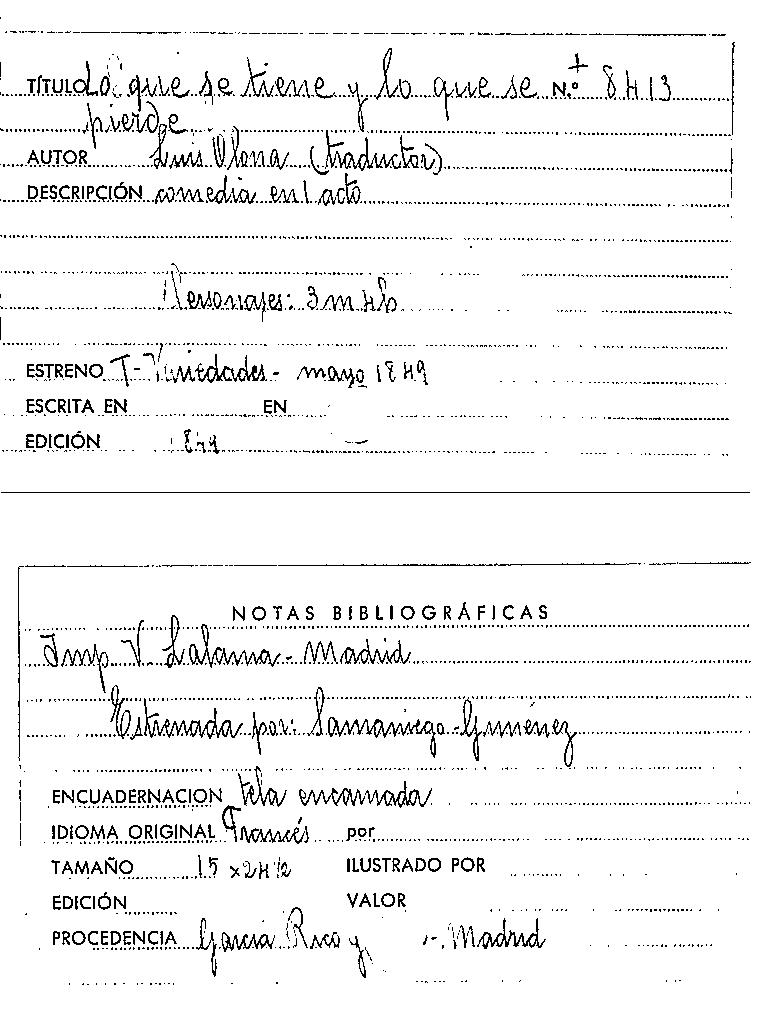 TÍTULO Lo que se tiene y lo que se N.º 8413
pierde
AUTOR Luis Olona (traductor)
DESCRIPCIÓN comedia en 1 acto
Personajes: 3m 4h
ESTRENO T- Variedades - mayo 1849
ESCRITA EN EN
EDICIÓN 1849 —
NOTAS BIBLIOGRÁFICAS
Imp. V. Lalama - Madrid
Estrenada por: Samaniego - Giménez
ENCUADERNACION tela encarnada
IDIOMA ORIGINAL Francés por
TAMAÑO 15 x 24 1/2 ILUSTRADO POR
EDICIÓN VALOR
PROCEDENCIA García Rico y - Madrid